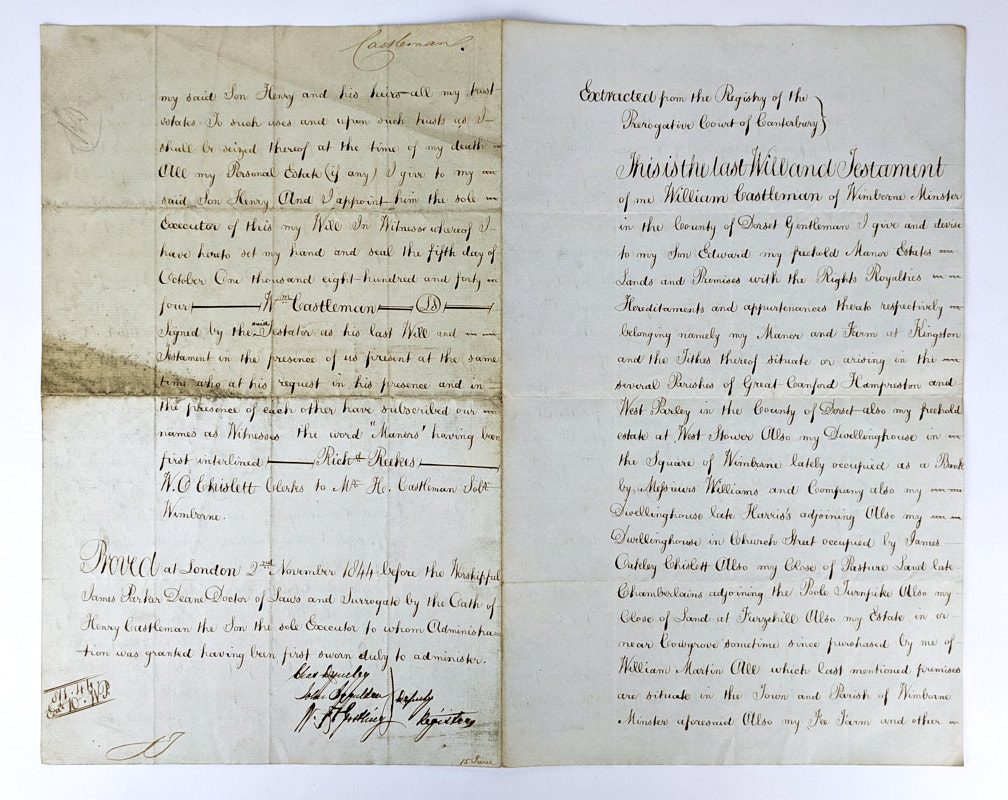 Castleman.
my said Son Henry and his heirs all my trust
estates To such uses and upon such trusts as I
shall be seized thereof at the time of my death
All my Personal Estate (if any) I give to my
said Son Henry And I appoint him the sole
Executor of this my Will In Witness whereof I
have hereto set my hand and seal the fifth day of
October One thousand eight hundred and forty
four Wm Castleman (Ls)
Signed by the said Testator as his last Will and
Testament in the presence of us present at the same
time who at his request in his presence and in
the presence of each other have subscribed our
names as Witnesses the word "Manors" having been
first interlined Richd Reekes
W. O Chislett Clerks to Mr H. Castleman Solr
Wimborne.
Proved at London 2nd November 1844 before the Worshipful
James Parker Deane Doctor of Laws and Surrogate by the Oath of
Henry Castleman the Son the sole Executor to whom Administra-
tion was granted having been first sworn duly to administer.
Chas Dyneley
John Iggulden
W. F. Gostling
Deputy
Registers
15
Extracted from the Registry of the
Prerogative Court of Canterbury
This is the last Will and Testament
of me William Castleman of Wimborne Minster
in the County of Dorset Gentleman I give and devise
to my Son Edward my freehold Manor Estates
Lands and Premises with the Rights Royalties
Hereditaments and appurtenances thereto respectively
belonging namely my Manor and Farm at Kingston
and the Tithes thereof situate or arising in the
several Parishes of Great Canford Hampreston and
West Parley in the County of Dorset also my freehold
estate at West Stower Also my Dwellinghouse in
the Square of Wimborne lately occupied as a Bank
by Messieurs Williams and Company also my
Dwellinghouse late Harris's adjoining Also my
Dwellinghouse in Church Street occupied by James
Oakley Chislett Also my Close of Pasture Land late
Chamberlains adjoining the Poole Turnpike Also my
Close of Land at Furzehill Also my Estate in or
near Cowgrove sometime since purchased by me of
William Martin All which last mentioned premises
are situate in the Town and Parish of Wimborne
Minster aforesaid Also my Fee Farm and other